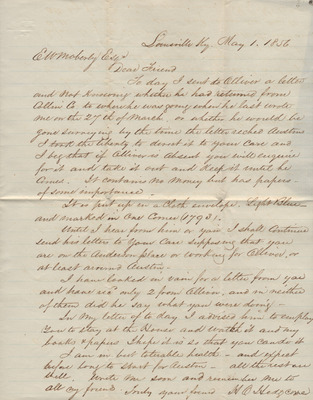 Louisville Ky May 1. 1856
E W Moberly Esqr
Dear Friend
To day I sent to Oliver a letter
and Not Knowing whether he had returned from
Allen Co to where he was going when he last wrote
me on the 27th of March or whether he would be
gone surveying by the time the letter reched Austin
I took the liberty to direct it to your Care and
I beg that if Oliver is absent you will enquire
for it and take it out and Keep it until he
comes. It contains No Money but has papers
of some importance.
It is put up in a Cloth envelope. Light Blue
and marked in One Corner (1793).
Until I hear from him or you I shall Continue
send his letters to Your Care supposing that you
are on the Anderson place or working for Oliver, or
at least around Austin.
I have looked in vain for a letter from you
and have rec'd only 2 from Oliver, and in neither
of them did he say what you were doing —
In My letter of to day I advised him to employ
You to stay at the House and watch it and my
books & papers I hope it is so that you can do it
I am in but tolerable health — and expect
before long to start for Austin — all the rest are
well. Write Me soon and remember me to
all my friend. Truly your friend H O Hedgcoxe